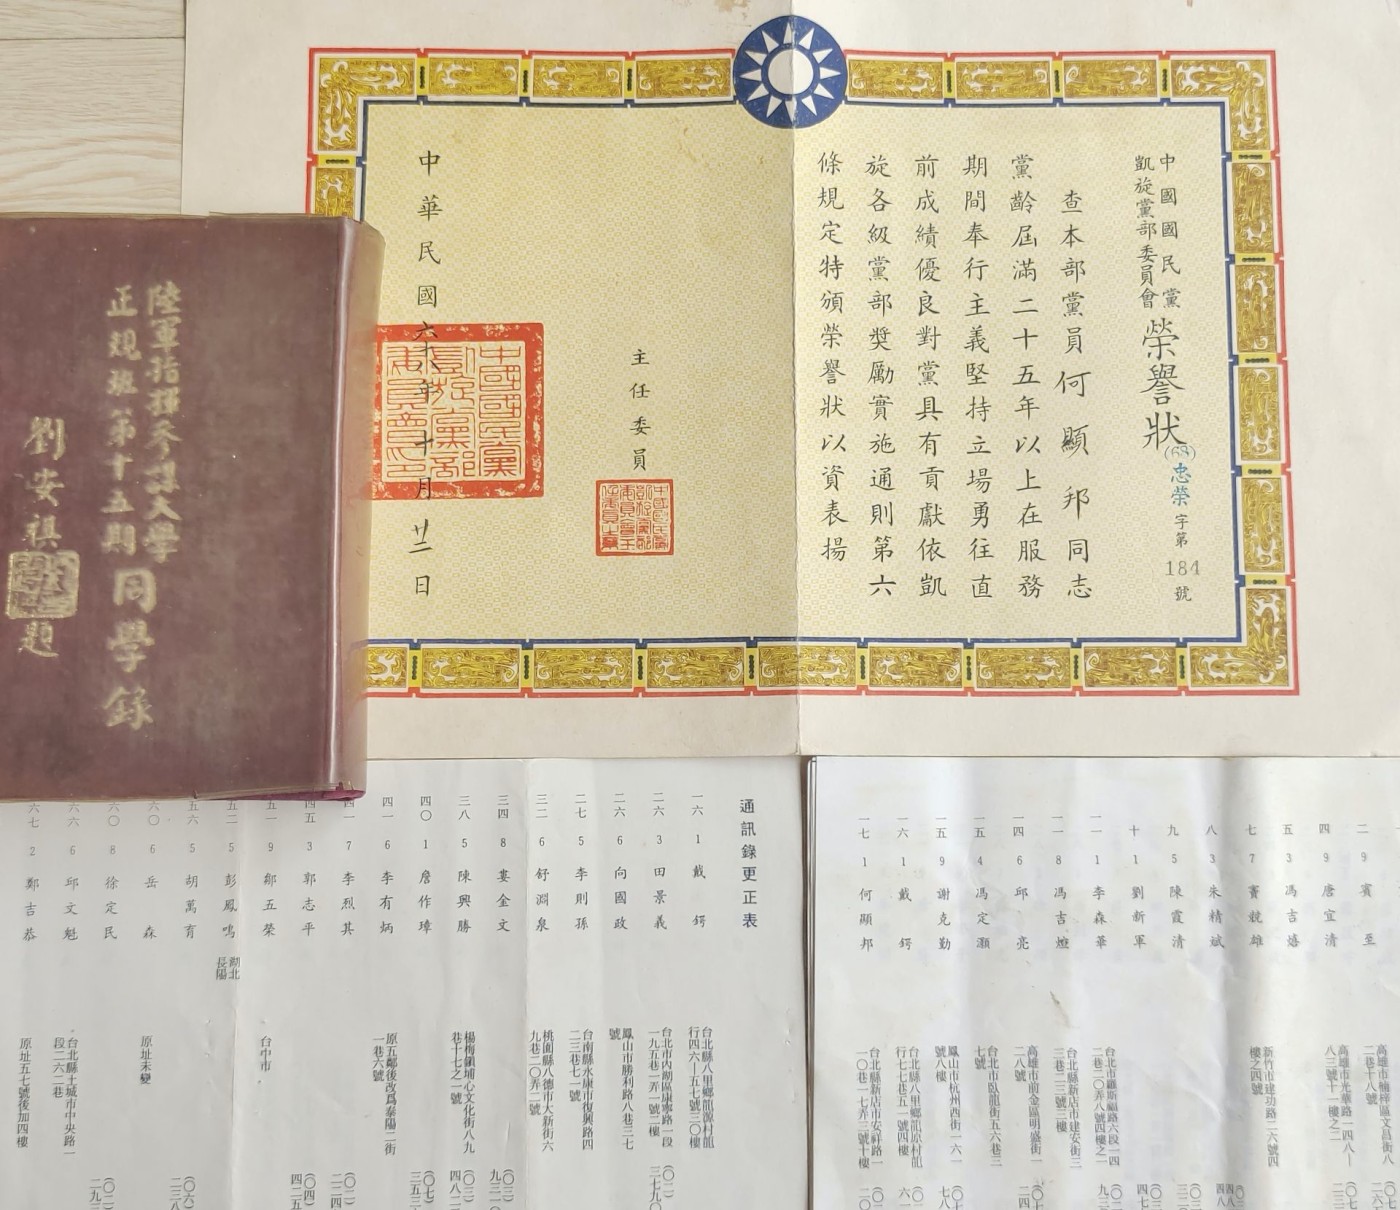 中國國民黨
凱旋黨部委員會
榮譽狀
(68)忠榮字第184號
查本部黨員何顯邦同志
黨齡屆滿二十五年以上在服務
期間奉行主義堅持立場勇往直
前成績優良對黨具有貢獻依凱
旋各級黨部獎勵實施通則第六
條規定特頒榮譽狀以資表揚
主任委員
中華民國六八年十月廿二日
陸軍指揮參謀大學
正規班第十五期同學錄
劉安祺題
通訊錄更正表
一六 1 戴鍔 台北縣八里鄉龍源村龍
行四六—五七號三〇樓
二六 3 田景義 台北市內湖區康寧路一段
一九五巷一弄一號二樓
二六 6 向國政 鳳山市勝利路八巷三七
號
二七 5 李則孫 台南縣永康市復興路四
二三巷七一號
三二 6 舒淵泉 桃園縣八德市大新街六
九巷二〇弄二號
三四 8 婁金文
三八 5 陳興勝 楊梅鎮埔心文化街八九
巷十七之一號
四〇 1 詹作璋
四一 6 李有炳 原五鄰後改爲泰陽二街
一巷六號
四一 7 李烈其
四五 3 郭志平
五一 9 鄒五榮 台中市
五二 5 彭鳳鳴 湖北
長陽
五六 5 胡萬育
六〇 6 岳森 原址未變
六〇 8 徐定民
六六 6 邱文魁 台北縣土城市中央路一
段二六二巷
六七 2 鄭吉恭 原址五七號後加四樓
二 9 賓至 高雄市楠梓區文昌街八
二巷十八號
四 9 唐宜清 高雄市光華路一四八—
八三號十一樓之二
五 3 馮吉嬉
七 7 竇競雄 新竹市建功路二六號四
樓之四號
八 3 朱精斌
九 5 陳霞清
十 1 劉新軍
一一 1 李森華 台北市羅斯福路六段一四
二巷二〇弄八號四樓之一
一一 8 馮吉嬑 台北縣新店市建安街三
三巷二三號三樓
一四 6 邱亮 高雄市前金區明盛街一
二八號
一五 4 馮定灝 台北市臥龍街五六巷三
七號
一五 9 謝克勤 鳳山市杭州西街一六一
號八樓
一六 1 戴鍔 台北縣八里鄉龍原村龍
行七七巷五一號四樓
一七 1 何顯邦 台北縣新店市安祥路一
一〇巷一七弄三號十樓